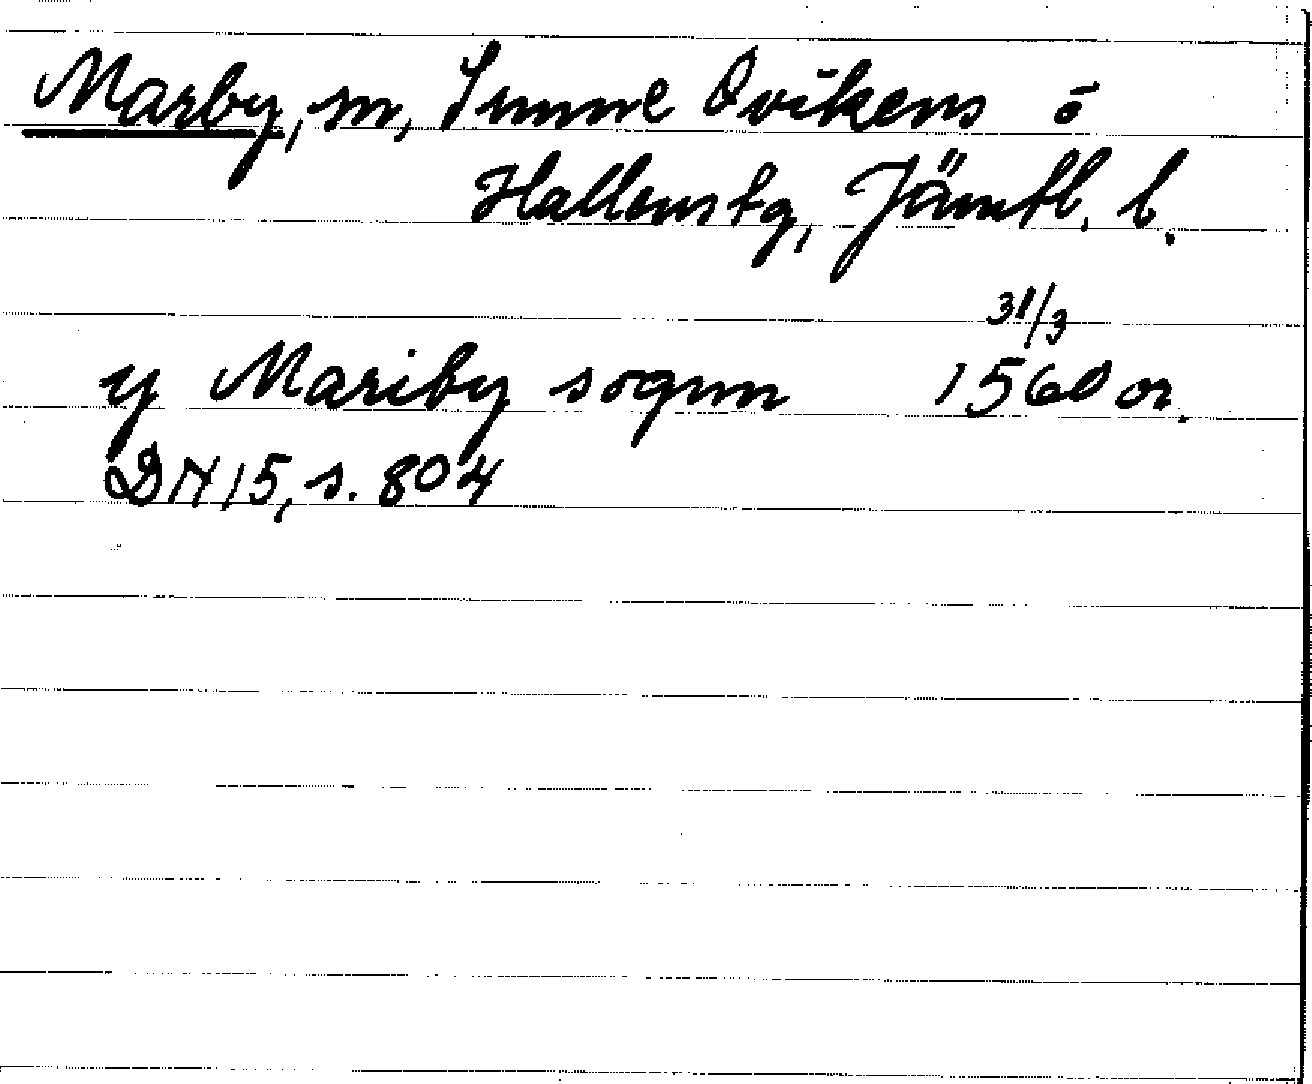 Marby, sn, Sunne Ovikens o
Hallens tg, Jämtl. l.
31/3
y Mariby sognn 1560 or.
DN 15, s. 804